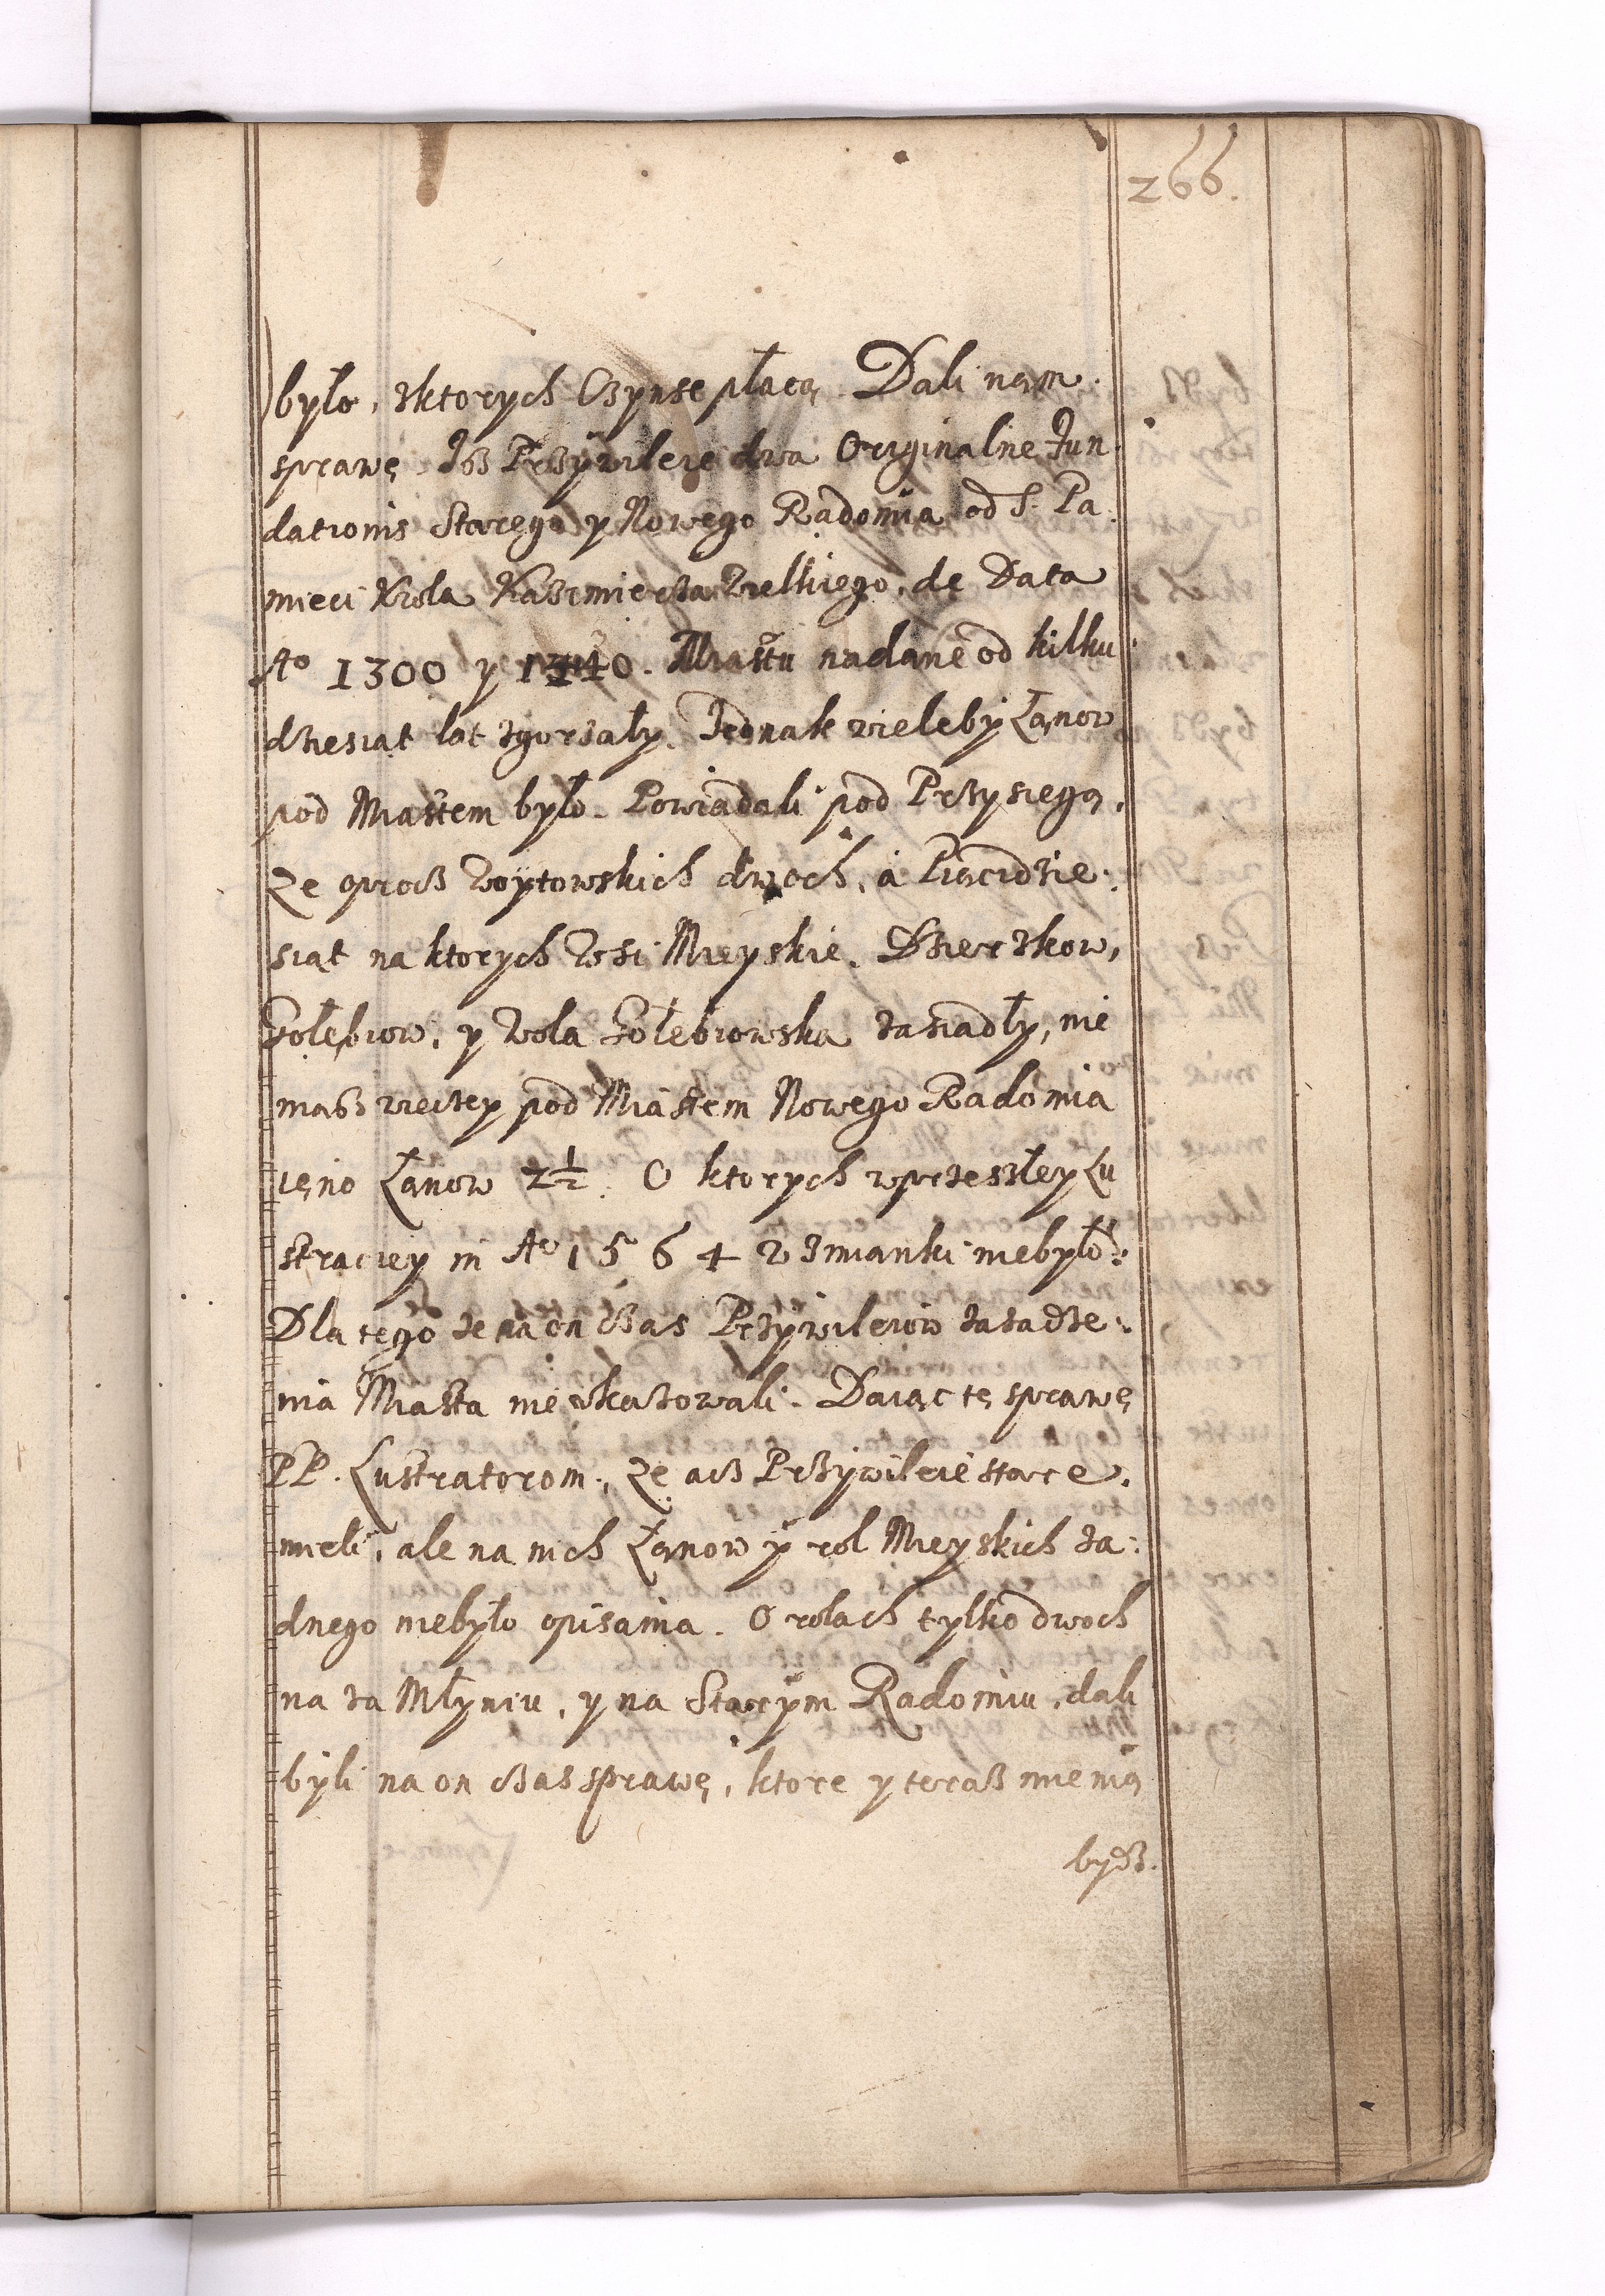 266.
było, zktorych Czynsze płacą Dali nam
sprawę Isz Przywileie dwa Originalne Fun
dationis Starego y Nowego Radomia od S. Pa
mieci Krola Kazimierza Wielkiego, de Data
Aº 1300 y 1340. Miastu nadane od kilku
dziesiąt lat zgorzały. Jednak wieleby Łanow
pod Miastem było. Powiadali pod Przysiegą,
że oprocz Woytowskich dwoch, a Piącidzie:
siąt na ktorych Wsi Mieyskie. Dzierzkow,
Gołębiow, y Wola Gołebiowska zasiadły, nie
masz wiecey pod Miastem Nowego Radomia
ieno Łanow 2½. O ktorych wprzeszłey Lu
straciey in Aº 1564 wzmianki niebyło:
Dla tego że na on czas Przywileiow zasadze:
nia Miasta nie ukazowali. Daiąc tę sprawę
PP. Lustratorom, że acz Przywileie stare
mieli, ale na nich Łanow y rol Mieyskich ża:
dnego niebyło opisania. O rolach tylko dwoch
na za Młyniu, y na Starym Radomiu, dali
byli na on czas sprawę, ktore y teraz mienią
bydz.